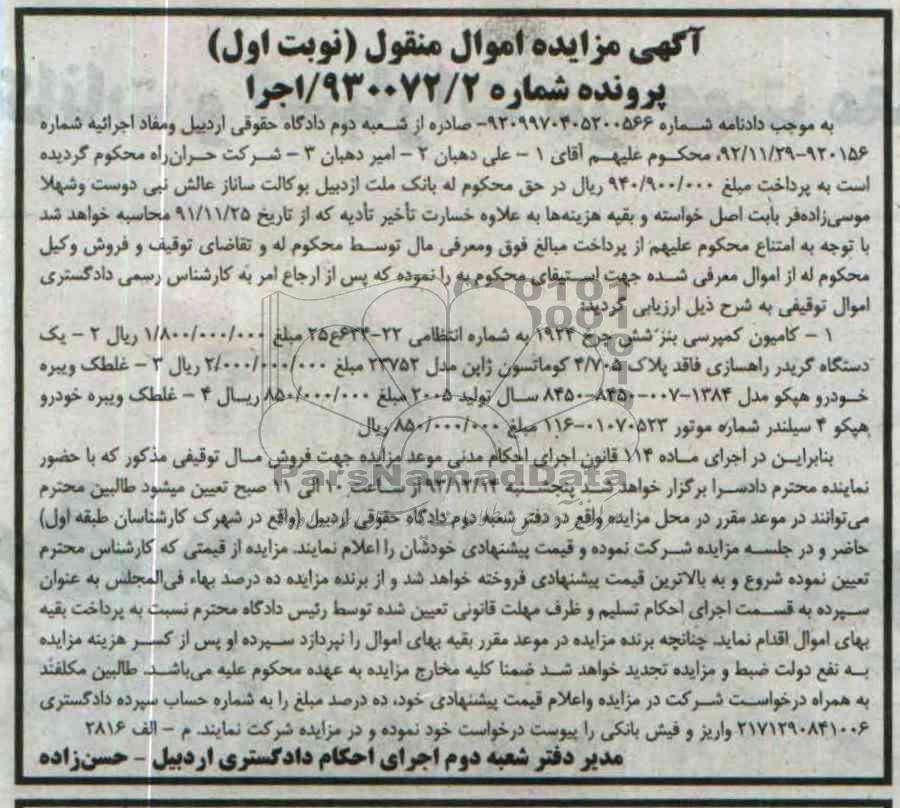 آگهی مزایده اموال منقول (نوبت اول)
پرونده شماره ۹۳۰۰۷۲/۲/اجرا
به موجب دادنامه شماره ۹۲۰۹۹۷۰۴۰۵۲۰۰۵۶۶- صادره از شعبه دوم دادگاه حقوقی اردبیل ومفاد اجرائیه شماره
۹۲۰۱۵۶-۹۲/۱۱/۲۹، محکوم علیهم آقای ۱ - علی دهبان ۲ - امیر دهبان ۳ - شرکت حران‌راه محکوم گردیده
است به پرداخت مبلغ ۹۴۰/۹۰۰/۰۰۰ ریال در حق محکوم له بانک ملت اردبیل بوکالت ساناز عالش نبی دوست وشهلا
موسی‌زاده‌فر بابت اصل خواسته و بقیه هزینه‌ها به علاوه خسارت تأخیر تأدیه که از تاریخ ۹۱/۱۱/۲۵ محاسبه خواهد شد
با توجه به امتناع محکوم علیهم از پرداخت مبالغ فوق ومعرفی مال توسط محکوم له و تقاضای توقیف و فروش وکیل
محکوم له از اموال معرفی شده جهت استیفای محکوم به را نموده که پس از ارجاع امر به کارشناس رسمی دادگستری
اموال توقیفی به شرح ذیل ارزیابی گردید:
۱ - کامیون کمپرسی بنز شش چرخ ۱۹۲۴ به شماره انتظامی ۲۲-۶۲۴ع۲۵ مبلغ ۱/۸۰۰/۰۰۰/۰۰۰ ریال ۲ - یک
دستگاه گریدر راهسازی فاقد پلاک ۴/۷۰۵ کوماتسون ژاپن مدل ۲۳۷۵۲ مبلغ ۲/۰۰۰/۰۰۰/۰۰۰ ریال ۳ - غلطک ویبره
خودرو هپکو مدل ۱۳۸۴-۰۰۷-۸۴۵۰-۸۴۵۰ سال تولید ۲۰۰۵ مبلغ ۸۵۰/۰۰۰/۰۰۰ ریال ۴ - غلطک ویبره خودرو
هپکو ۴ سیلندر شماره موتور ۰۱۰۷۰۵۲۳-۱۱۶ مبلغ ۸۵۰/۰۰۰/۰۰۰ ریال
بنابراین در اجرای ماده ۱۱۴ قانون اجرای احکام مدنی موعد مزایده جهت فروش مال توقیفی مذکور که با حضور
نماینده محترم دادسرا برگزار خواهد شد پنجشنبه ۹۳/۱۲/۱۴ از ساعت ۱۰ الی ۱۱ صبح تعیین میشود طالبین محترم
می‌توانند در موعد مقرر در محل مزایده واقع در دفتر شعبه دوم دادگاه حقوقی اردبیل (واقع در شهرک کارشناسان طبقه اول)
حاضر و در جلسه مزایده شرکت نموده و قیمت پیشنهادی خودشان را اعلام نمایند. مزایده از قیمتی که کارشناس محترم
تعیین نموده شروع و به بالاترین قیمت پیشنهادی فروخته خواهد شد و از برنده مزایده ده درصد بهاء فی‌المجلس به عنوان
سپرده به قسمت اجرای احکام تسلیم و ظرف مهلت قانونی تعیین شده توسط رئیس دادگاه محترم نسبت به پرداخت بقیه
بهای اموال اقدام نماید. چنانچه برنده مزایده در موعد مقرر بقیه بهای اموال را نپردازد سپرده او پس از کسر هزینه مزایده
به نفع دولت ضبط و مزایده تجدید خواهد شد ضمنا کلیه مخارج مزایده به عهده محکوم علیه می‌باشد. طالبین مکلفند
به همراه درخواست شرکت در مزایده واعلام قیمت پیشنهادی خود، ده درصد مبلغ را به شماره حساب سپرده دادگستری
۲۱۷۱۲۹۰۸۴۱۰۰۶ واریز و فیش بانکی را پیوست درخواست خود نموده و در مزایده شرکت نمایند. م - الف ۲۸۱۶
مدیر دفتر شعبه دوم اجرای احکام دادگستری اردبیل - حسن‌زاده
ParsNamadData